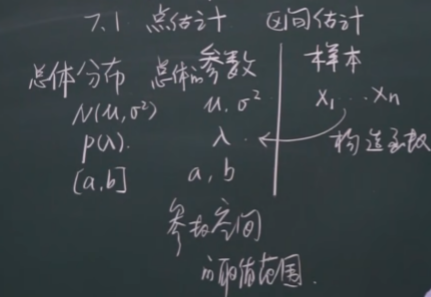 7.1 点估计 区间估计
总体分布 总体的参数 样本
N(μ,σ²) μ,σ² X₁...Xn
P(λ). λ. 构造函数
[a,b] a,b
参数空间
的取值范围.